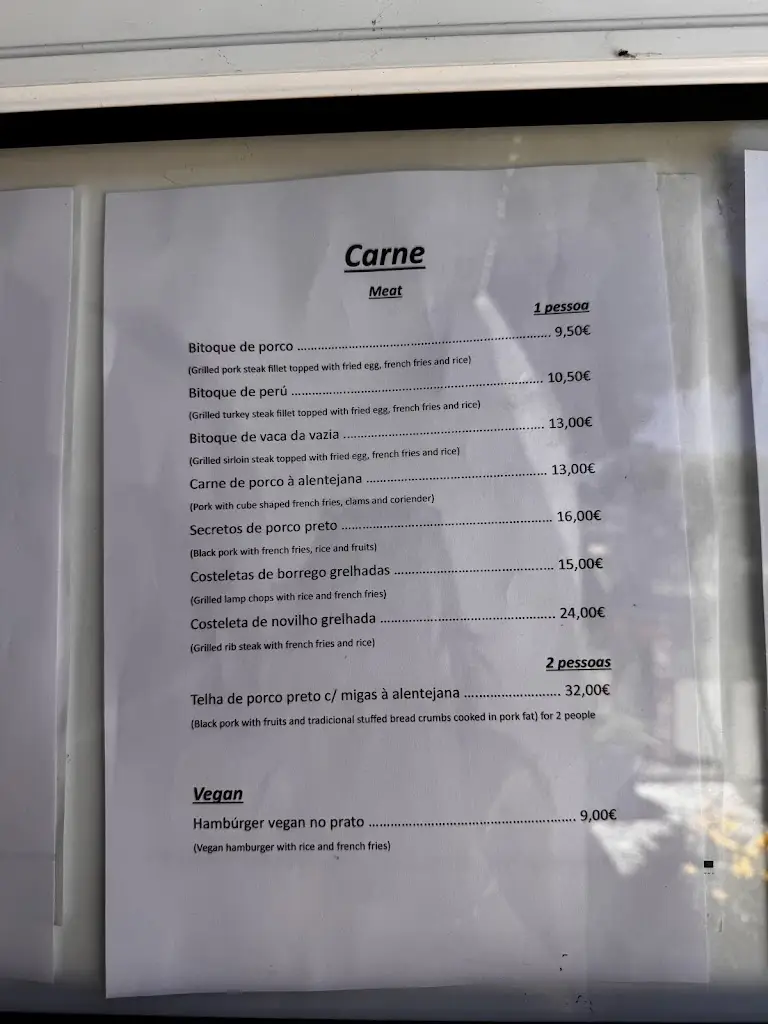 Carne
Meat
1 pessoa
Bitoque de porco ........................................................ 9,50€
(Grilled pork steak fillet topped with fried egg, french fries and rice)
Bitoque de perú ........................................................ 10,50€
(Grilled turkey steak fillet topped with fried egg, french fries and rice)
Bitoque de vaca da vazia ............................................. 13,00€
(Grilled sirloin steak topped with fried egg, french fries and rice)
Carne de porco à alentejana ........................................ 13,00€
(Pork with cube shaped french fries, clams and coriender)
Secretos de porco preto ............................................... 16,00€
(Black pork with french fries, rice and fruits)
Costeletas de borrego grelhadas ................................... 15,00€
(Grilled lamp chops with rice and french fries)
Costeleta de novilho grelhada ....................................... 24,00€
(Grilled rib steak with french fries and rice)
2 pessoas
Telha de porco preto c/ migas à alentejana ..................... 32,00€
(Black pork with fruits and tradicional stuffed bread crumbs cooked in pork fat) for 2 people
Vegan
Hambúrger vegan no prato .............................................. 9,00€
(Vegan hamburger with rice and french fries)